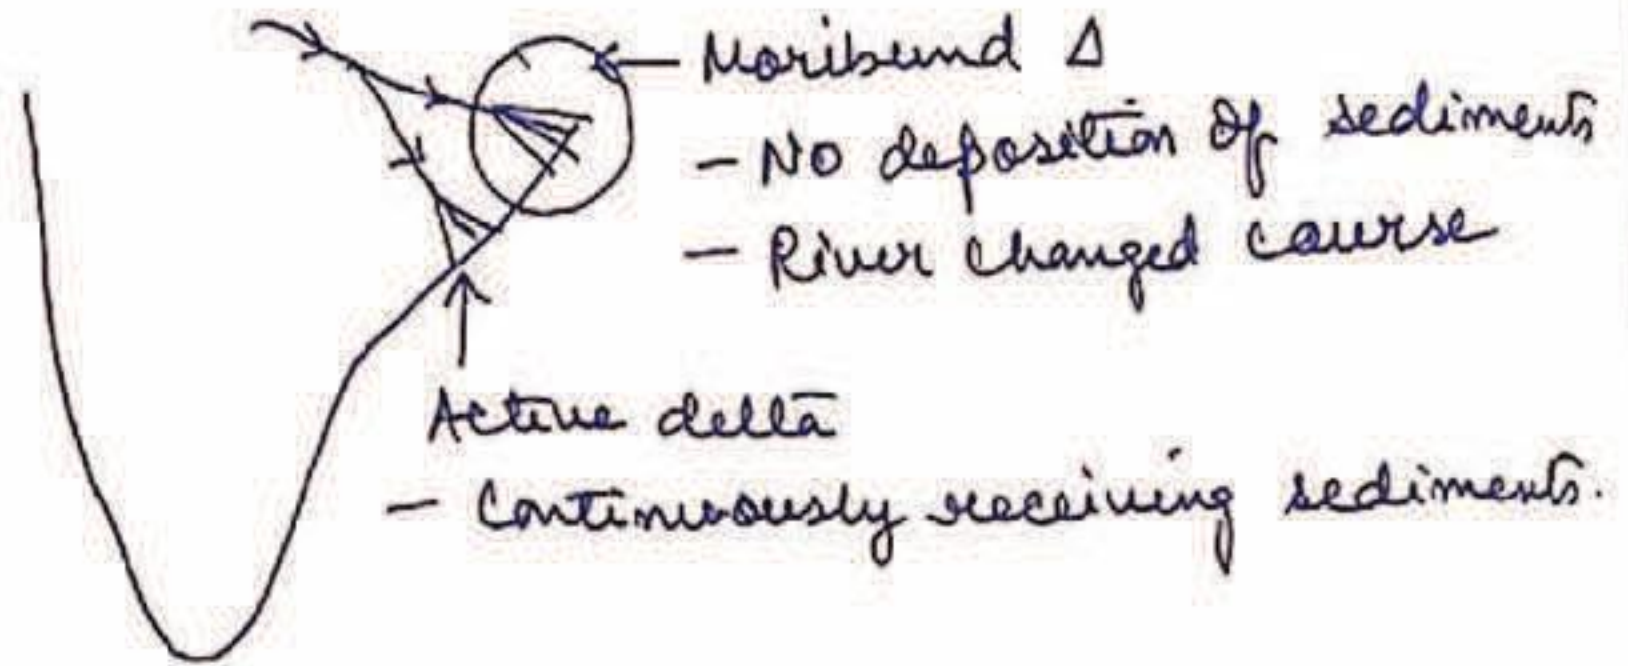 Moribund Δ
- No deposition of sediments
- River changed course
Active delta
- Continuously receiving sediments.